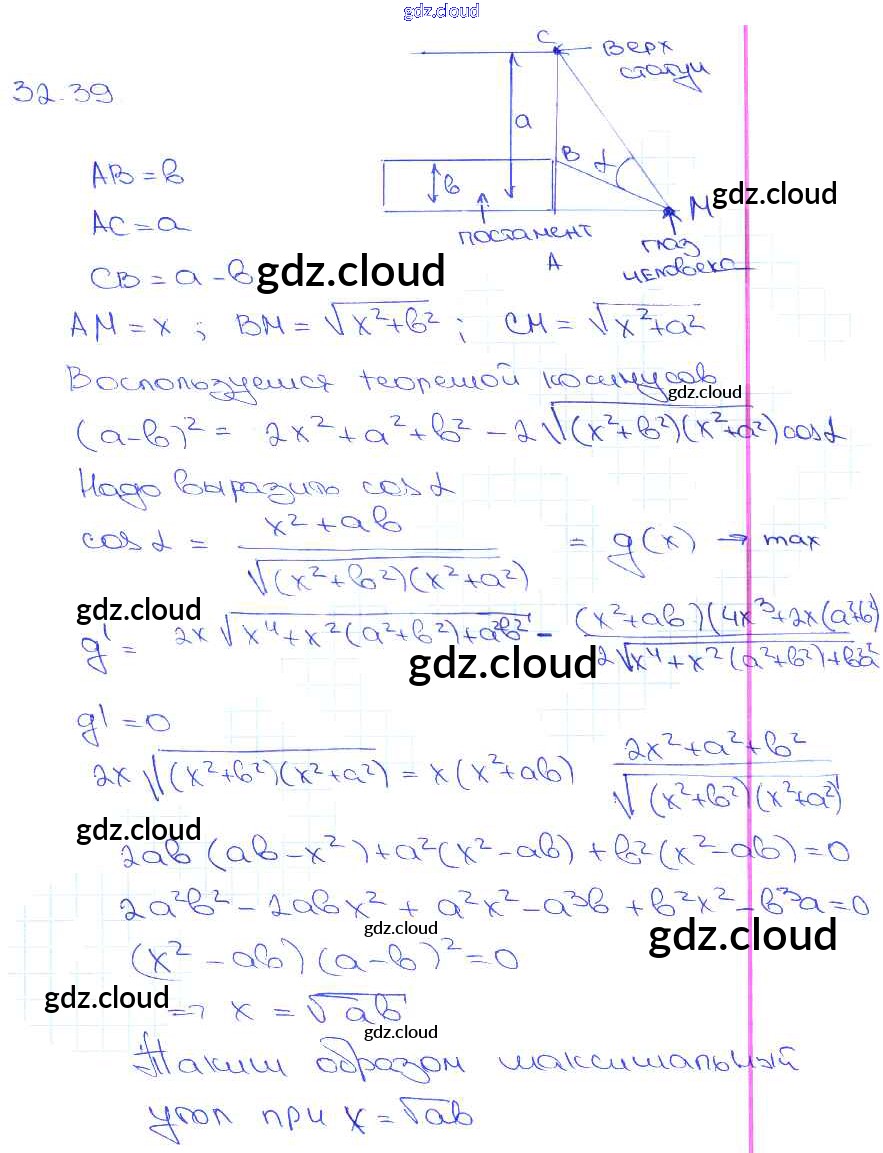 gdz.cloud
32.39
C
верх
статуи
a
AB = b
b
B
α
M
gdz.cloud
AC = a
постамент
глаз
человека
A
CB = a - b
gdz.cloud
AM = x ; BM = √(x² + b²) ; CM = √(x² + a²)
Воспользуемся теоремой косинусов
gdz.cloud
(a-b)² = 2x² + a² + b² - 2√((x²+b²)(x²+a²)) cos α
Надо выразить cos α
cos α = (x² + ab) / √((x²+b²)(x²+a²)) = g(x) → max
gdz.cloud
g' = 2x √(x⁴ + x²(a²+b²) + a²b²) - (x²+ab)(4x³+2x(a²+b²) / 2√(x⁴ + x²(a²+b²) + b²a²
gdz.cloud
g' = 0
2x √((x²+b²)(x²+a²)) = x(x²+ab) (2x²+a²+b²) / √((x²+b²)(x²+a²))
gdz.cloud
2ab (ab - x²) + a²(x² - ab) + b²(x² - ab) = 0
2a²b² - 2abx² + a²x² - a³b + b²x² - b³a = 0
gdz.cloud
gdz.cloud
(x² - ab) (a-b)² = 0
gdz.cloud
=> x = √ab
gdz.cloud
Таким образом максимальный
угол при x = √ab